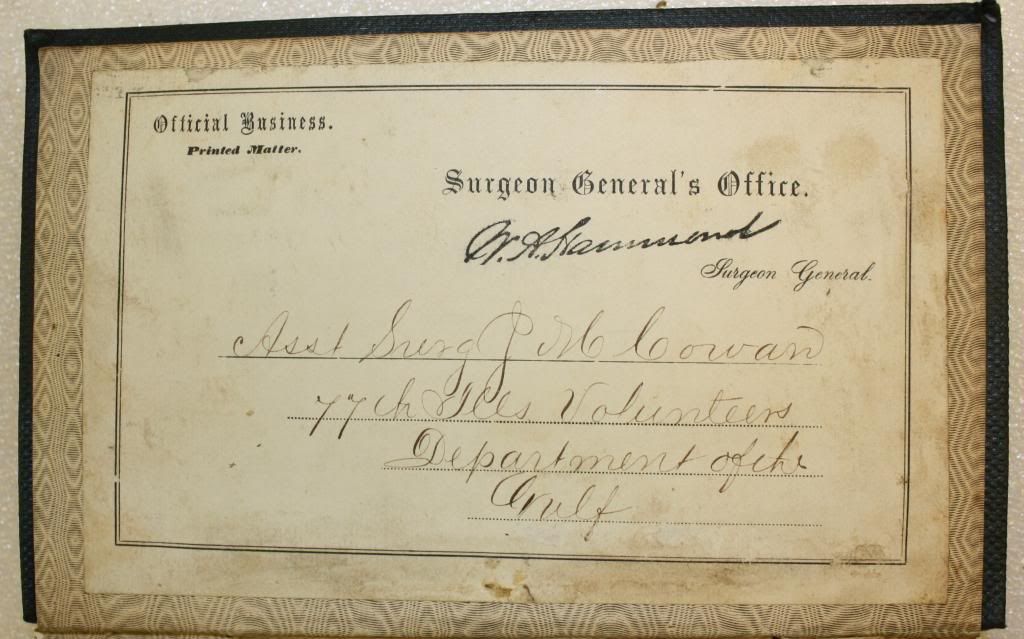 Official Business.
Printed Matter.
Surgeon General's Office.
W. A. Hammond
Surgeon General.
Asst Surg J M Cowan
77th Ills Volunteers
Department of the
Gulf